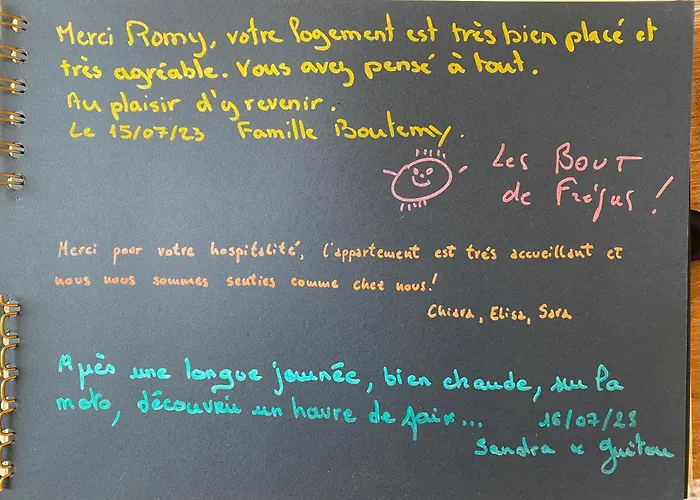 Merci Romy, votre logement est très bien placé et
très agréable. Vous avez pensé à tout.
Au plaisir d'y revenir.
Le 15/07/23 Famille Boutemy.
Les BOUT
de Fréjus !
Merci pour votre hospitalité, l'appartement est trés accueillant et
nous nous sommes senties comme chez nous!
Chiara, Elisa, Sara
Après une longue journée, bien chaude, sur la
moto, découvrir un havre de paix...
16/07/23
Sandra & Guitou